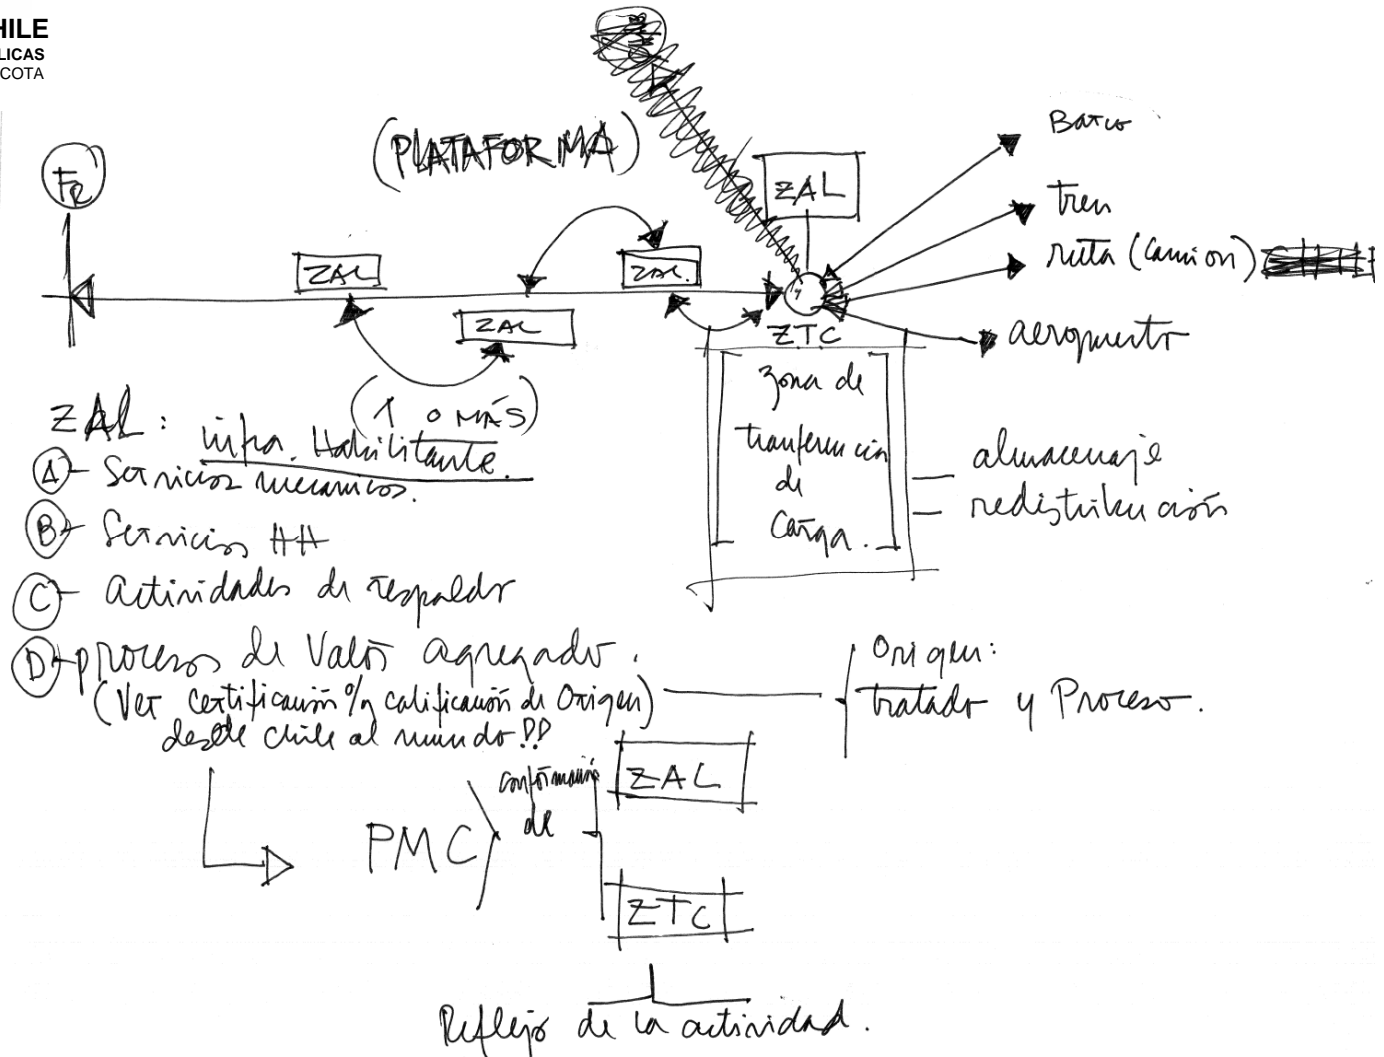 HILE
LICAS
COTA
Barco
(PLATAFORMA)
ZAL
Fr
tren
ruta (camion)
ZAL
ZAL
ZAL
aeropuerto
ZTC
zona de
tranferencia
de
Carga.
almacenaje
redistribución
(1 o MÁS)
ZAL: infra. Habilitante.
A- Servicios mecanicos.
B- Servicios HH
C- actividades de respaldo
D- procesos de Valor agregado.
(Ver certificación % y calificación de Origen)
desde chile al mundo!!
Origen:
tratado y Proceso.
PMC
conformación
de
ZAL
ZTC
Reflejo de la actividad.